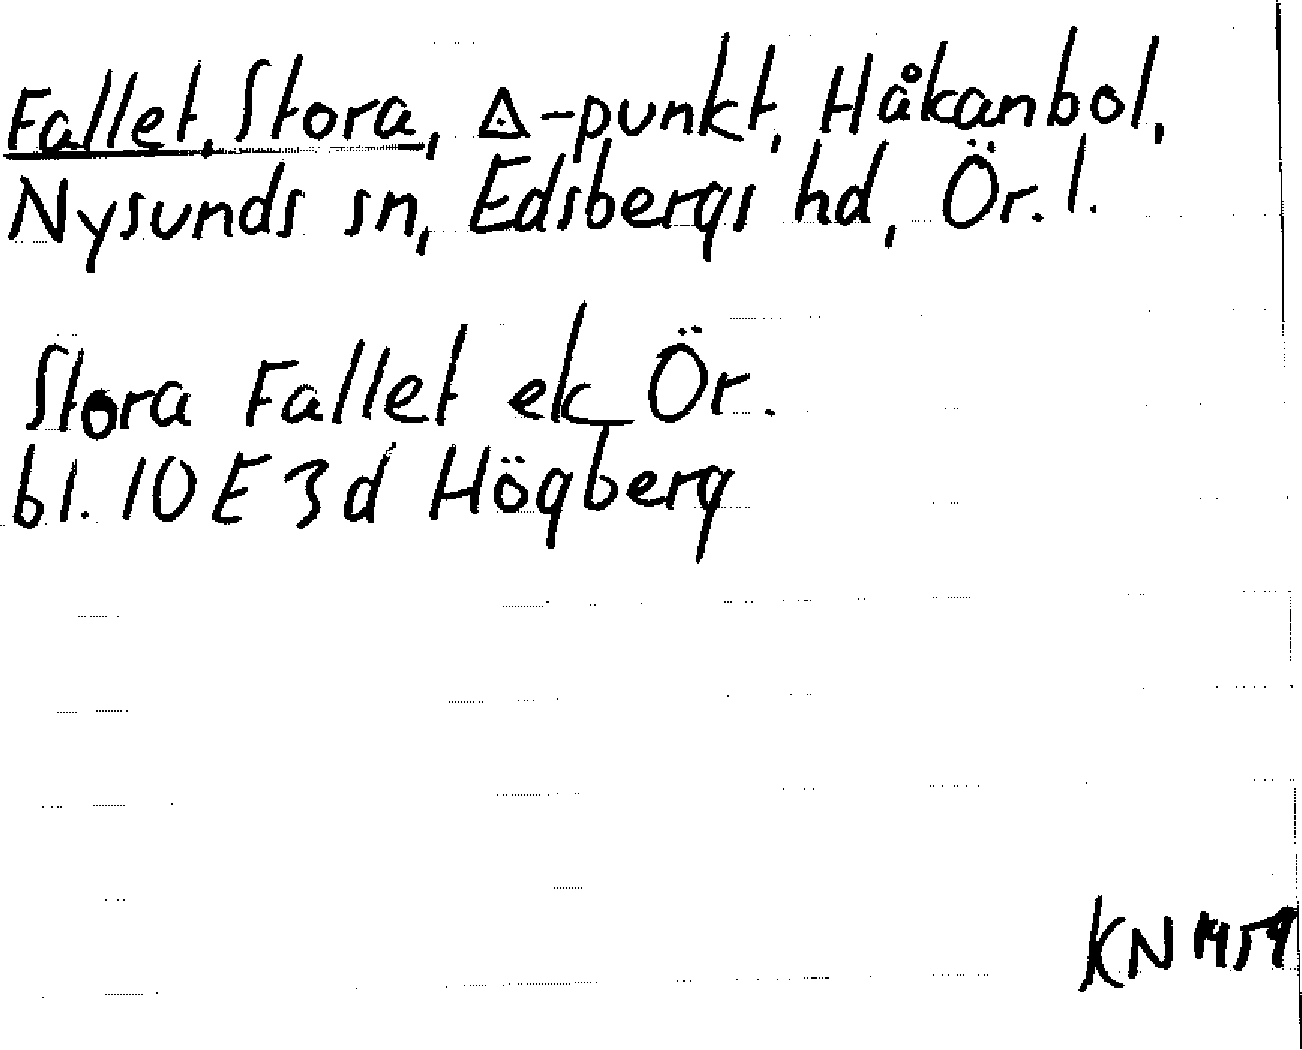 Fallet, Stora, △-punkt, Håkanbol,
Nysunds sn, Edsbergs hd, Ör. l.
Stora Fallet ek Ör.
bl. 10 E 3 d Högberg
KN 1959